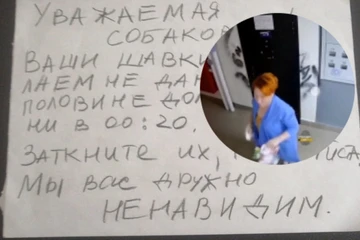 УВАЖАЕМАЯ
СОБАКО
ВАШИ ШАВКИ
ЛАЕМ НЕ ДА
ПОЛОВИНЕ ДО
НИ В 00:20.
ЗАТКНИТЕ ИХ,
МЫ ВАС ДРУЖНО
НЕНАВИДИМ.